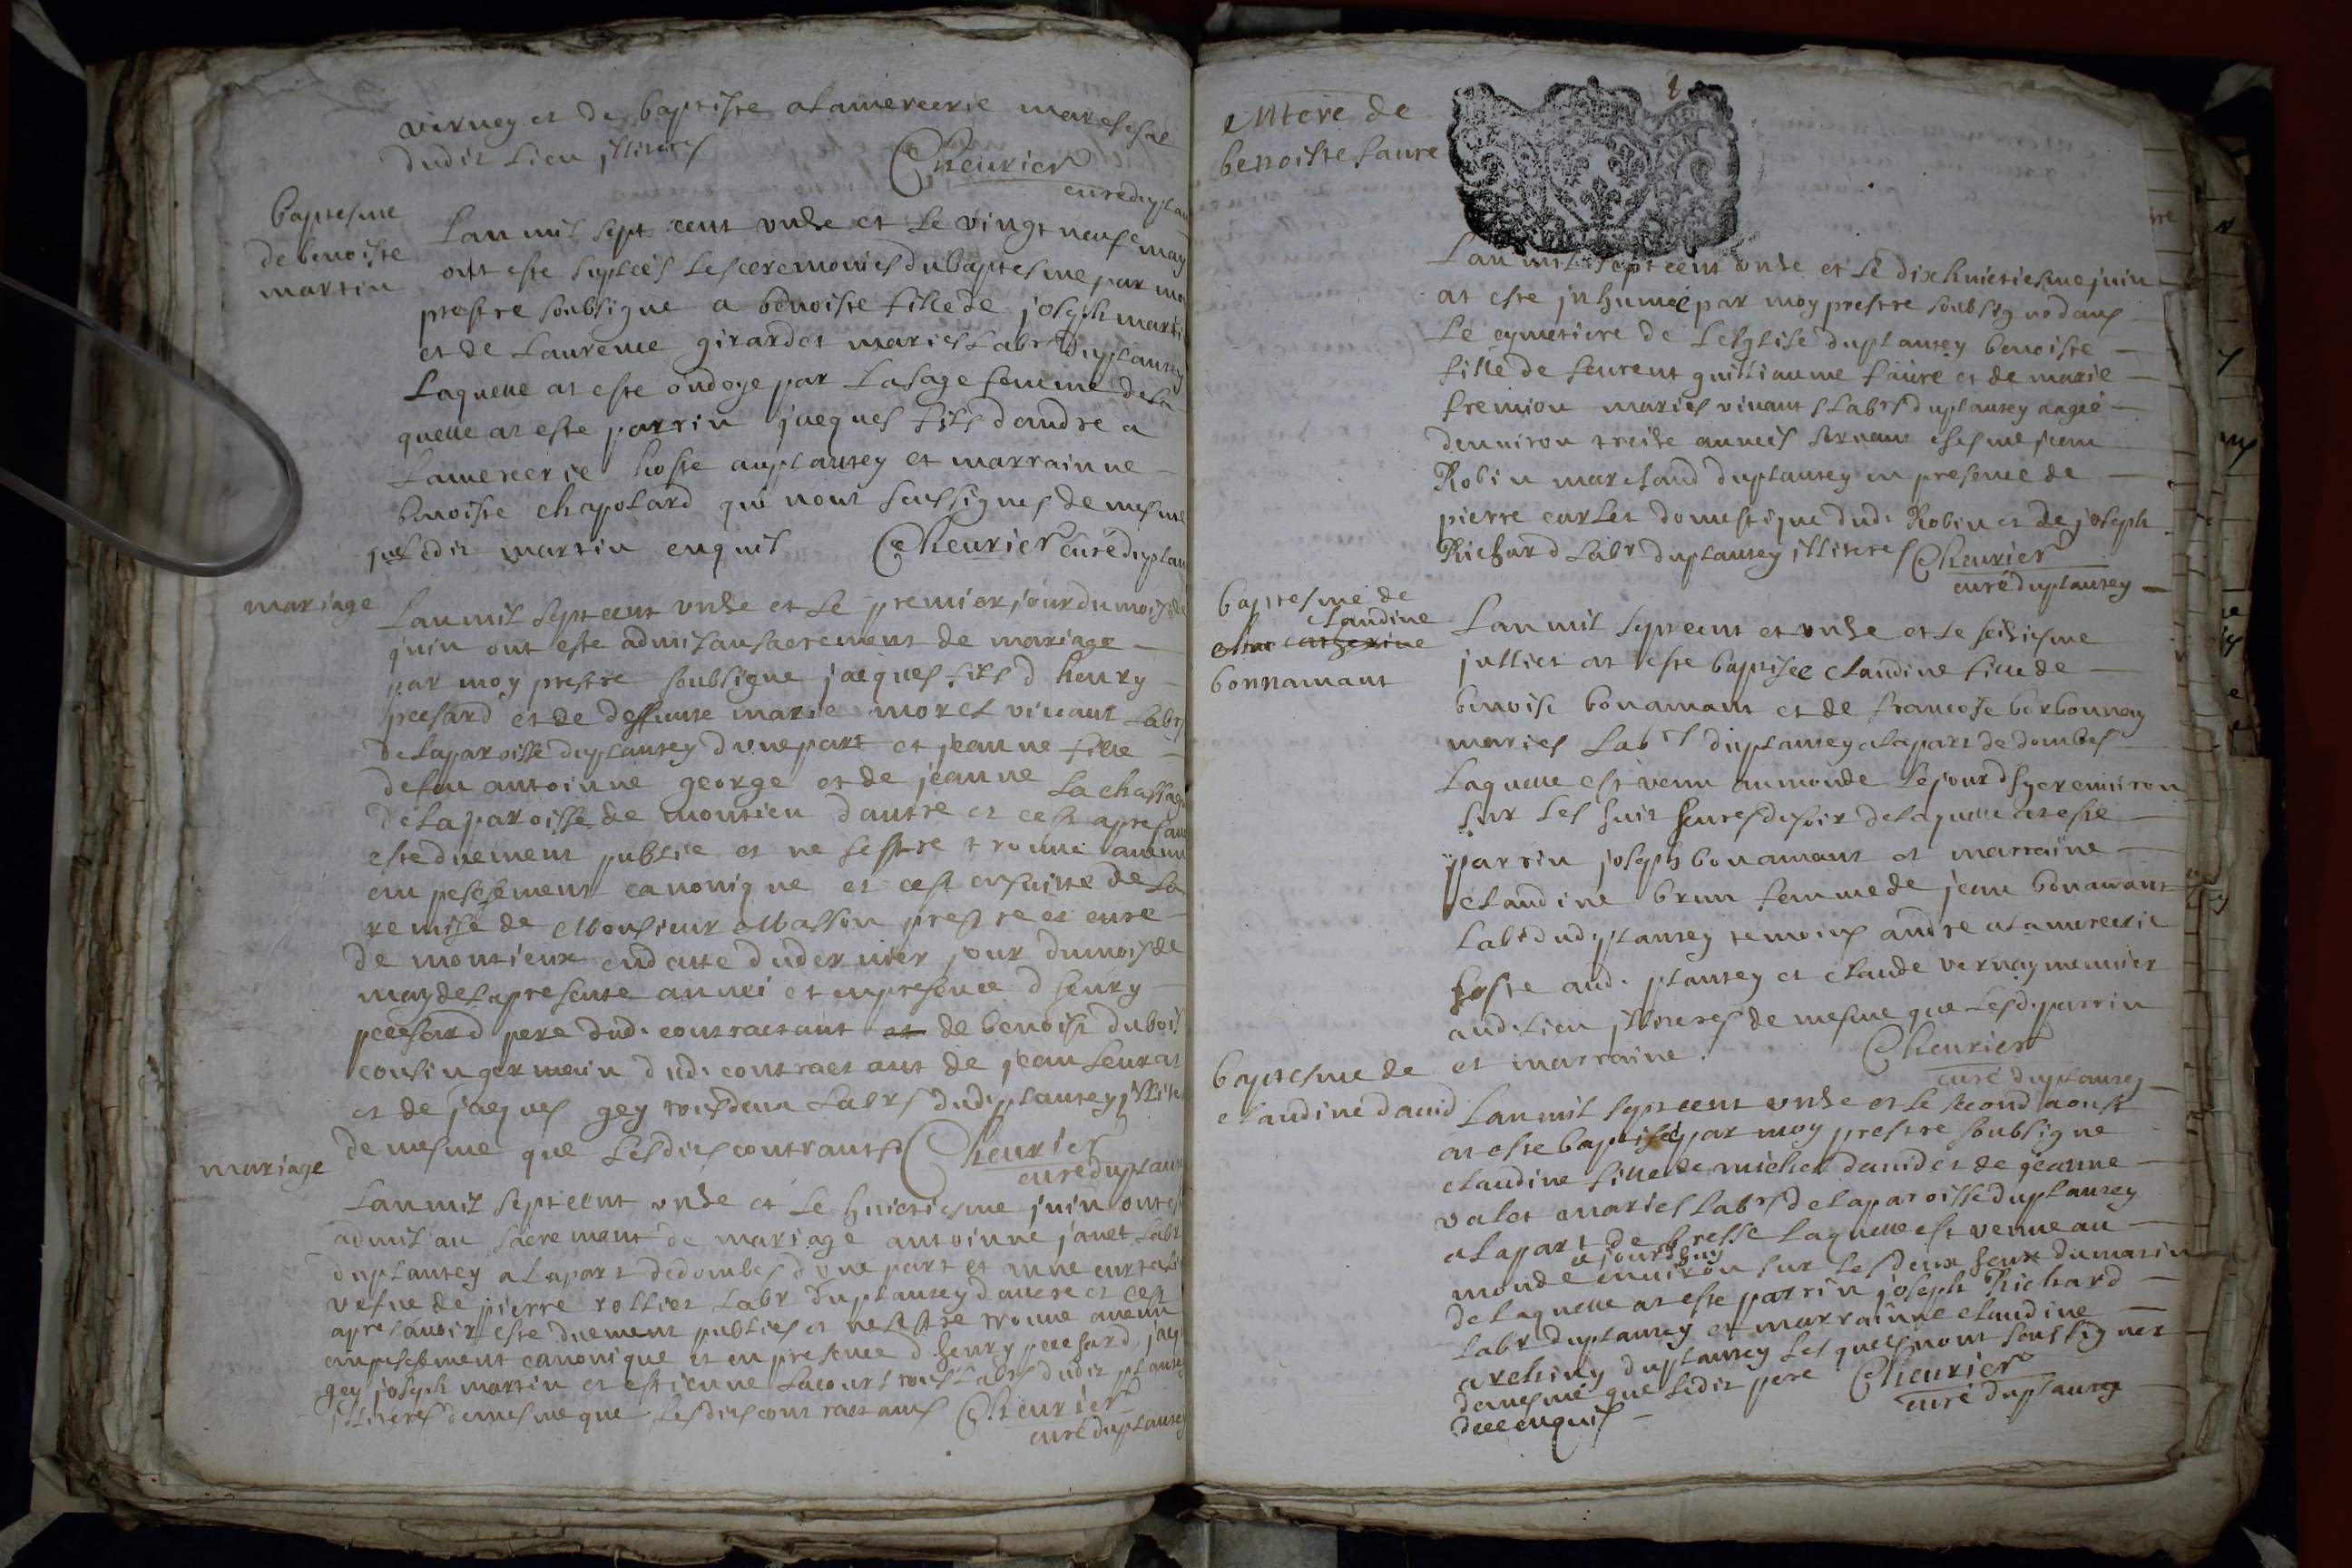 verney et de baptiste alamercerie mareschal
dudit lieu jlliteres
Cheurier
curé duplan
baptesme
de benoiste
martin
Lan mil sept cent unze et le vingt neuf may
ont este suplées les ceremonies du baptesme par mo
prestre soubsigne a benoiste fille de joseph marti
et de laurence girardet mariés labrs duplantey
laquelle at este ondoye par la sage femme de la
quelle at este parrin jacques fils dandré a
lamercerie hoste auplantey et marrainne
benoiste chapolard qui nont sceu signer de mesme
que ledit martin enquis Cheurier curé duplan
mariage
Lan mil sept cent unze et le premier jour du mois de
juin ont este admis au sacrement de mariage
par moy prestre soubsigne jacques fils d henry
peesard et de deffunte marie morel vivant labrs
de la paroisse duplantey dune part et jeanne fille
de feu antoinne george et de jeanne la chassag
de la paroisse de montieu dautre et cest apres auoir
este duement publie et ne sestre trouué aucun
empeschement canonique et cest ensuitte de la
remise de Monsieur Masson prestre et curé
de montieux endatte du dernier jour du mois de
may de la presente année et en presence d henry
peesard pere dud. contractant et de benoist dubois
cousin germain dud. contractant de jean leurat
et de jacques gey tous deux labrs dud. plantey jllite
de mesme que lesdits contrants Cheurier
curé duplante
mariage
Lan mil sept cent unze et le huictiesme juin ont es
admis au sacrement de mariage antoinne janet labr
duplantey a la part de dombes dune part et anne curt
vefue de pierre rollier labr duplantey dautre et cest
apres auoir este duement publiés et ne sestre trouué aucun
empeschement canonique et en presence d henry peesard, jacq
gey joseph martin et estienne lacour tous labrs dudit plantey
jlliteres de mesme que lesdits contractans Cheurier
curé duplantey
enterre de
benoiste faure
Lan mil sept cent unze et le dixhuictiesme juin
at este jnhumée par moy prestre soubsigné dans
le cymetiere de lesglise duplantey benoiste
fille de feurent guilliaume faure et de marie
fremion mariés vivants labrs duplantey aagée
denuiron treize années seruant chés me jean
Robin marchand duplantey en presence de
pierre carlet domestique dud. Robin et de joseph
Richard labr duplantey jlliteres Cheurier
curé duplantey
baptesme de
claudine
catherine
bonnamant
Lan mil sept cent et unze et le seiziesme
juillet at este baptisée claudine fille de
benoist bonamant et de francoise borbonnay
mariés labrs duplantey a la part de dombes
laquelle est venu aumonde le jour dhyer enuiron
sur les huit heures du soir de laquelle at este
parrin joseph bonamant et marraine
claudine brun femme de jean bonamant
labr dud. plantey temoins andre alamercerie
hoste aud. plantey et claude vernay meunier
aud. lieu jlliteres de mesme que lesd. parrin
et marraine. Cheurier
curé duplantey
baptesme de
claudine dauid
Lan mil sept cent unze et le second aoust
at este baptisée par moy prestre soubsigne
claudine fille de michel dauid et de jeanne
valet mariés labrs de la paroisse duplantey
a la part de bresse laquelle est venue au
monde ajourdhuy enuiron sur les deux heur du matin
de laquelle at este parrin joseph Richard
labr duplantey et marrainne claudine
archiny duplantey lesquels nont sceu signer
de mesme que ledit pere Cheurier
de ce enquis
curé duplantey